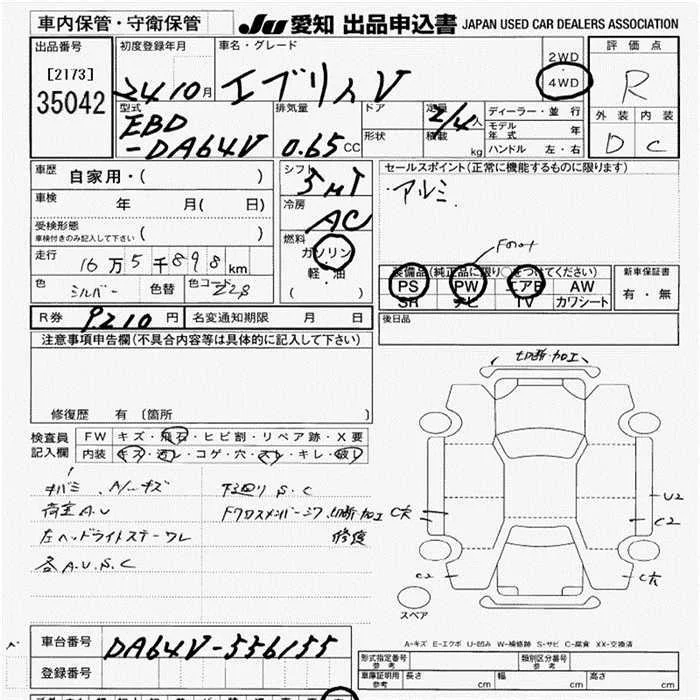 車内保管・守衛保管 JU 愛知 出品申込書 JAPAN USED CAR DEALERS ASSOCIATION
出品番号 初度登録年月 車名・グレード 2WD・4WD 評価点
[2173] 35042 24 10月 エブリィV R
型式 排気量 ドア 定員 2/4人 ディーラー・並行 外装 内装
EBD-DA64V 0.65CC 形状 積載 kg モデル年式 年 D C
ハンドル 左・右
車歴 自家用・( ) シフト 5MT セールスポイント(正常に機能するものに限ります)
車検 年 月( 日) 冷房 AC ・アルミ
受検形態
車検付きのみ記入して下さい ( ) 燃料 ガソリン・軽・油 ( ) Front
走行 16万5千898km 装備品(純正品に限り○をつけてください) 新車保証書
色 シルバー 色替 色コード Z2S PS PW エアB AW 有・無
SR ナビ TV カワシート
R券 9210円 名変通知期限 月 日 後日品
注意事項申告欄(不具合内容等は具体的に記入して下さい)
修復歴 有〔箇所
切断・加工
検査員記入欄 FW キズ・飛石・ヒビ割・リペア跡・X要
内装 キズ・汚レ・コゲ・穴・スレ・キレ・破レ
下廻り S.C
荷室A.U
左ヘッドライトステーワレ 修復
各A.U.S.C
C大 U2
C2
C2 C大
スペア
A-キズ E-エクボ U-凹み W-補修跡 S-サビ C-腐食 XX-交換済
車台番号 DA64V-556155
登録番号
形式指定番号 参考 類別区分番号 参考
車庫証明用 参考 長さ cm 幅 cm 高さ cm